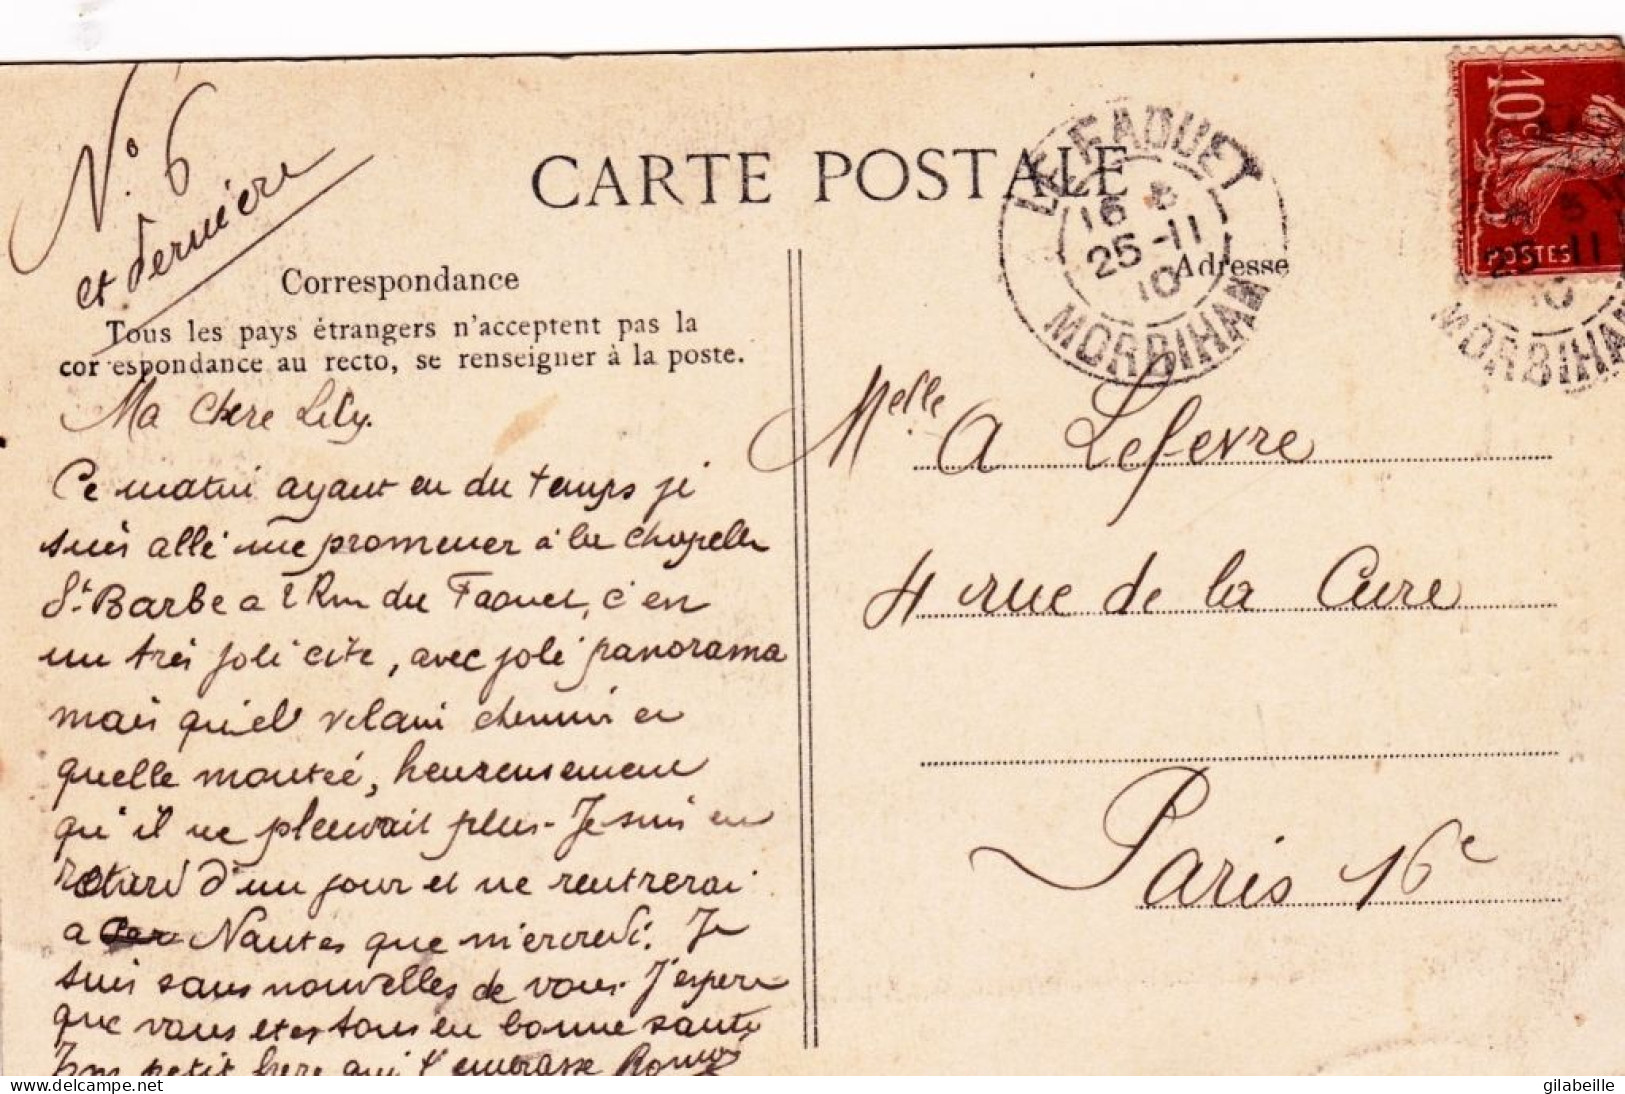 N° 6
et dernière
CARTE POSTALE
Correspondance
Tous les pays étrangers n'acceptent pas la
cor espondance au recto, se renseigner à la poste.
Ma chere Lily.
Ce matin ayant eu du temps je
suis allé me promener à la chapelle
Ste Barbe a 2 Km du Faouet, c'en
un très joli cite, avec joli panorama
mais quel vilain chemin et
quelle montée, heureusement
qu'il ne pleuvait plus. Je suis en
retard d'un jour et ne rentrerai
a Nantes que mercredi. Je
suis sans nouvelles de vous. J'espere
que vous etes tous en bonne santé
Ton petit frere qui t'embrasse
LE FAOUET
16
25-11
10
MORBIHAN
Adresse
10c
POSTES
25-11
10
MORBIHAN
Melle A Lefevre
4 rue de la Cure
Paris 16e
delcampe.net
gilabeille